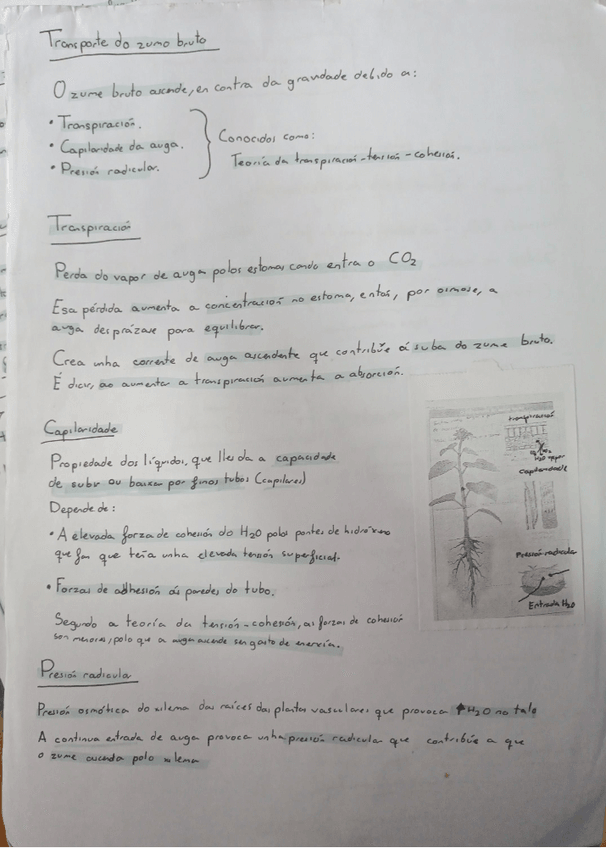 Transporte do zumo bruto
O zume bruto ascende, en contra da gravidade debido a:
• Transpiración.
• Capilaridade da auga.
• Presión radicular.
Conocidos como:
Teoría da transpiración-tensión-cohesión.
Transpiración
Perda do vapor de auga polos estomas cando entra o CO2
Esa pérdida aumenta a concentración no estoma, entos, por osmose, a
auga desprázase para equilibrar.
Crea unha corrente de auga ascendente que contribúe á suba do zume bruto.
É dicir, ao aumentar a transpiración aumenta a absorción.
Capilaridade
Propiedade dos líquidos, que lles da a capacidade
de subir ou baixar por finos tubos (capilares)
Depende de:
• A elevada forza de cohesión do H2O polos pontes de hidróxeno
que fan que teña unha elevada tensión superficial.
• Forzas de adhesión ás paredes do tubo.
Segundo a teoría da tensión-cohesión, as forzas de cohesión
son menores, polo que a auga ascende sen gasto de enerxía.
transpiración
H2O vapor
capilaridade
Presión radicular
Entrada H2O
Presión radicular
Presión osmótica do xilema das raíces das plantas vasculares que provoca ↑H2O no talo
A continua entrada de auga provoca unha presión radicular que contribúe a que
o zume ascenda polo xilema